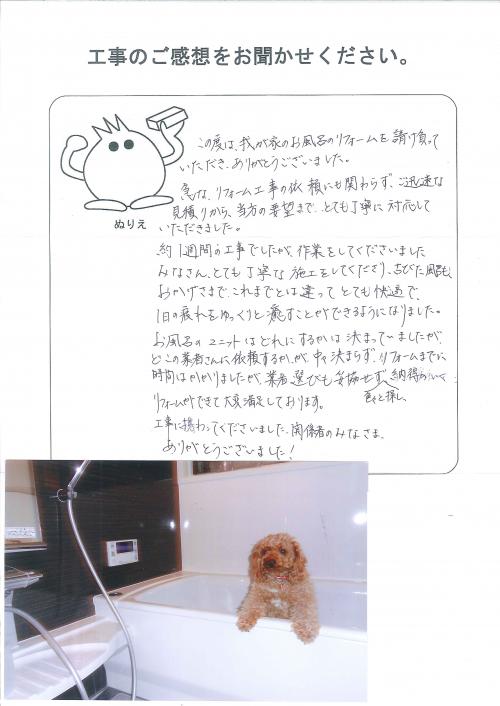 工事のご感想をお聞かせください。
ぬりえ
この度は、我が家のお風呂のリフォームを請け負って
いただき、ありがとうございました。
急な、リフォーム工事の依頼にも関わらず、ご迅速な
見積りから、当方の要望まで、とても丁寧に対応して
いただきました。
約1週間の工事でしたが、作業をしてくださいました
みなさん、とても丁寧な施工をしてくださり、古びた風呂も、
おかげさまで、これまでとは違ってとても快適で、
1日の疲れをゆっくりと癒すことができるようになりました。
お風呂のユニットはどれにするかは決まっていましたが、
どこの業者さんに依頼するか、が中々決まらず、リフォームまでに
時間はかかりましたが、業者選びも妥協せず、納得のいく
色々と探し、
リフォームができて大変満足しております。
工事に携わってくださいました、関係者のみなさま、
ありがとうございました!